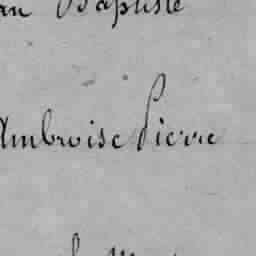 an Baptiste
Ambroise Pierre